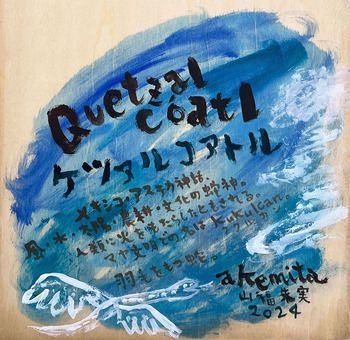 Quetzal
coatl
ケツァルコアトル
メキシコ・アステカ神は、
風・水・太陽・農耕・文化の蛇神。
人類に火をもたらしたともされる。
マヤ文明での名は Kukulcan.
ククルカン
羽毛をもつ蛇。
akemita
山福朱実
2024